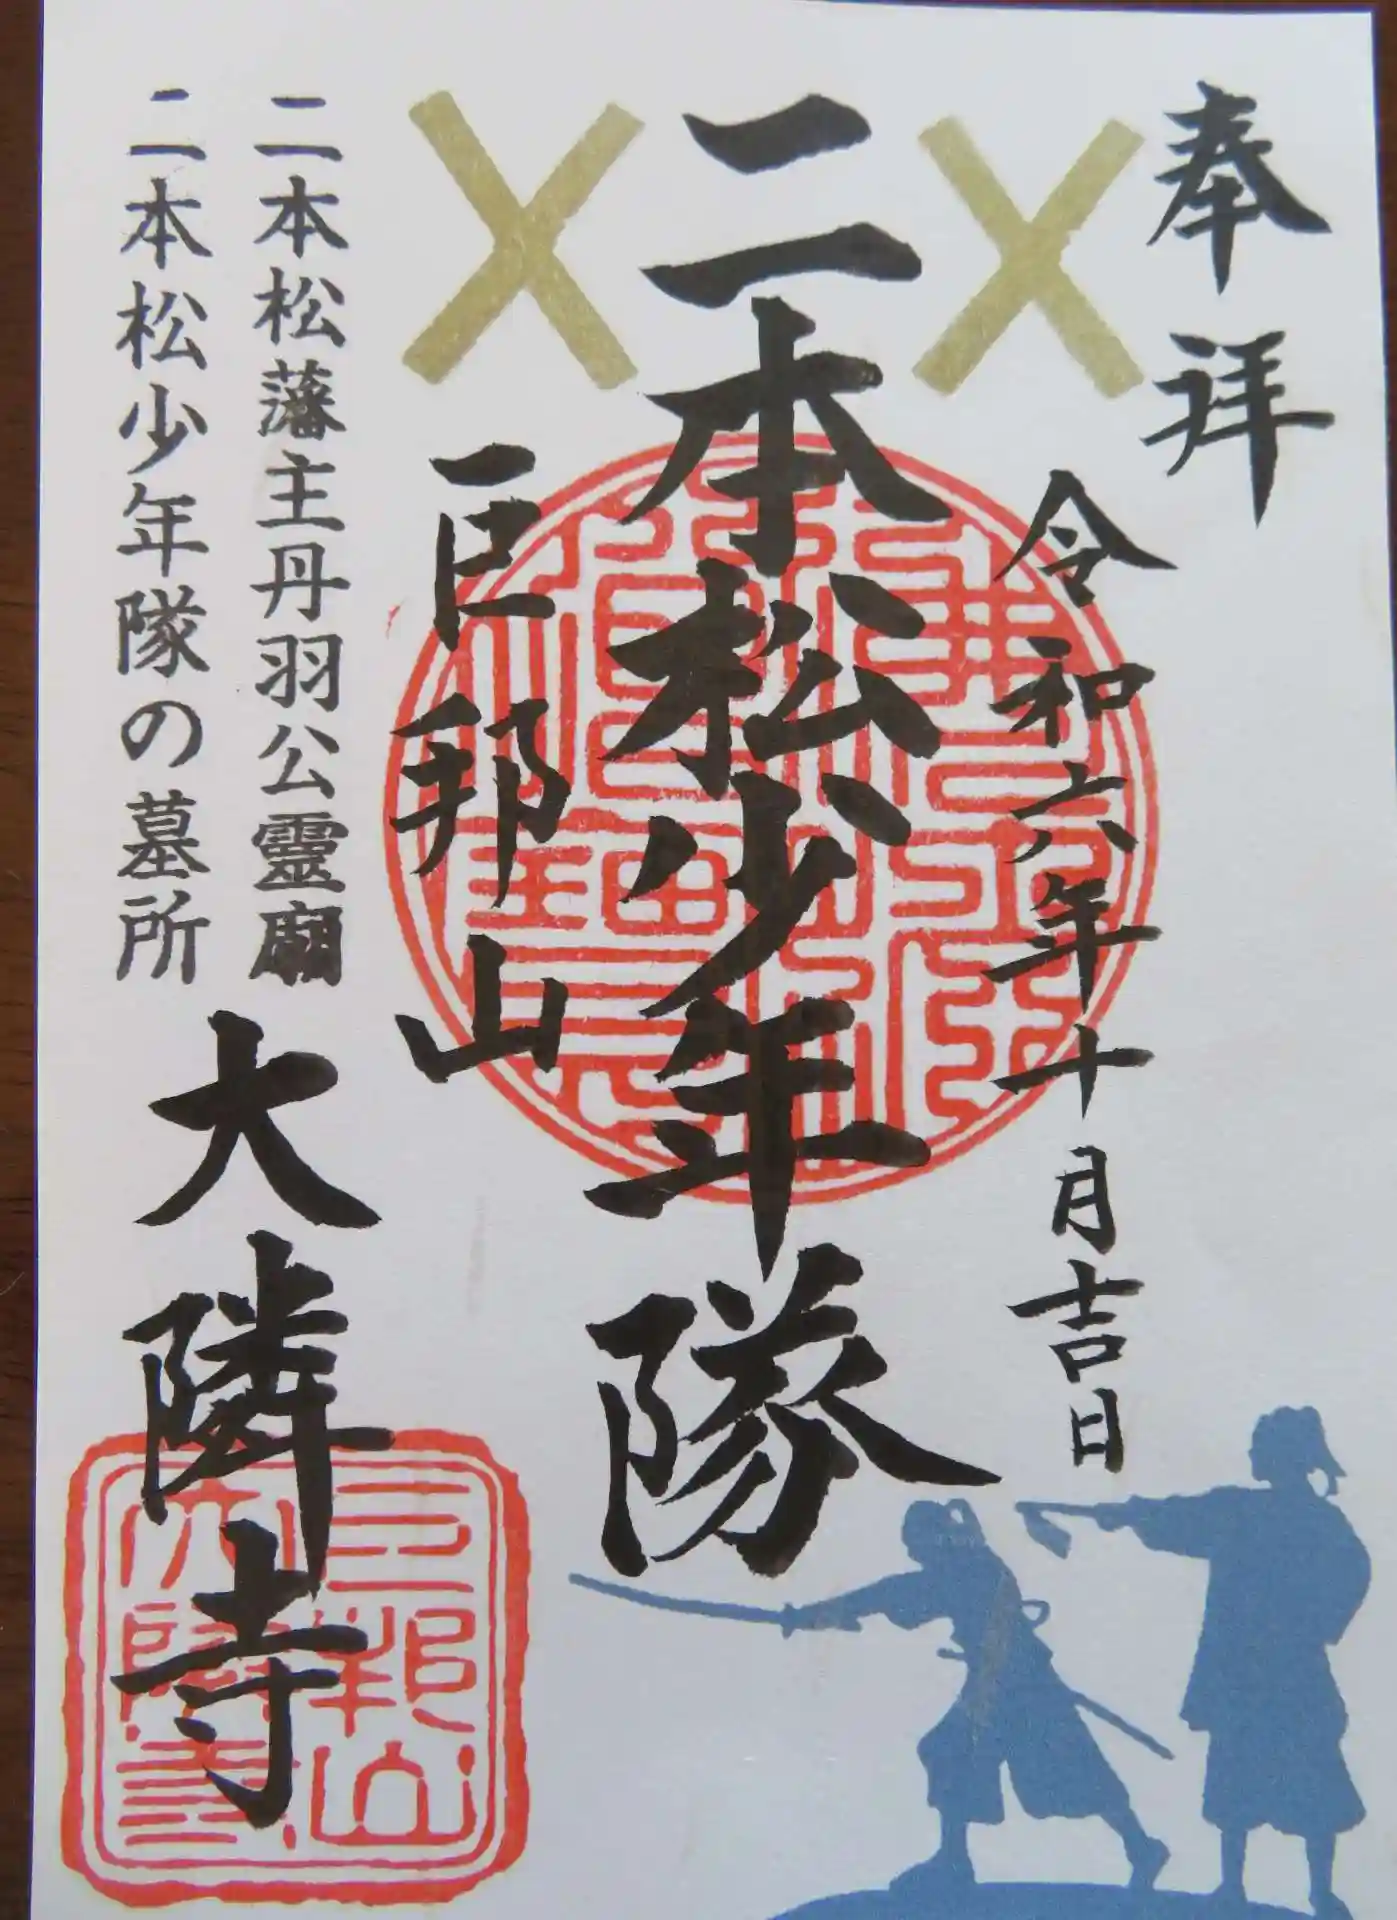 奉拝
令和六年十月吉日
二本松少年隊
巨邦山
二本松藩主丹羽公靈廟
二本松少年隊の墓所
大隣寺